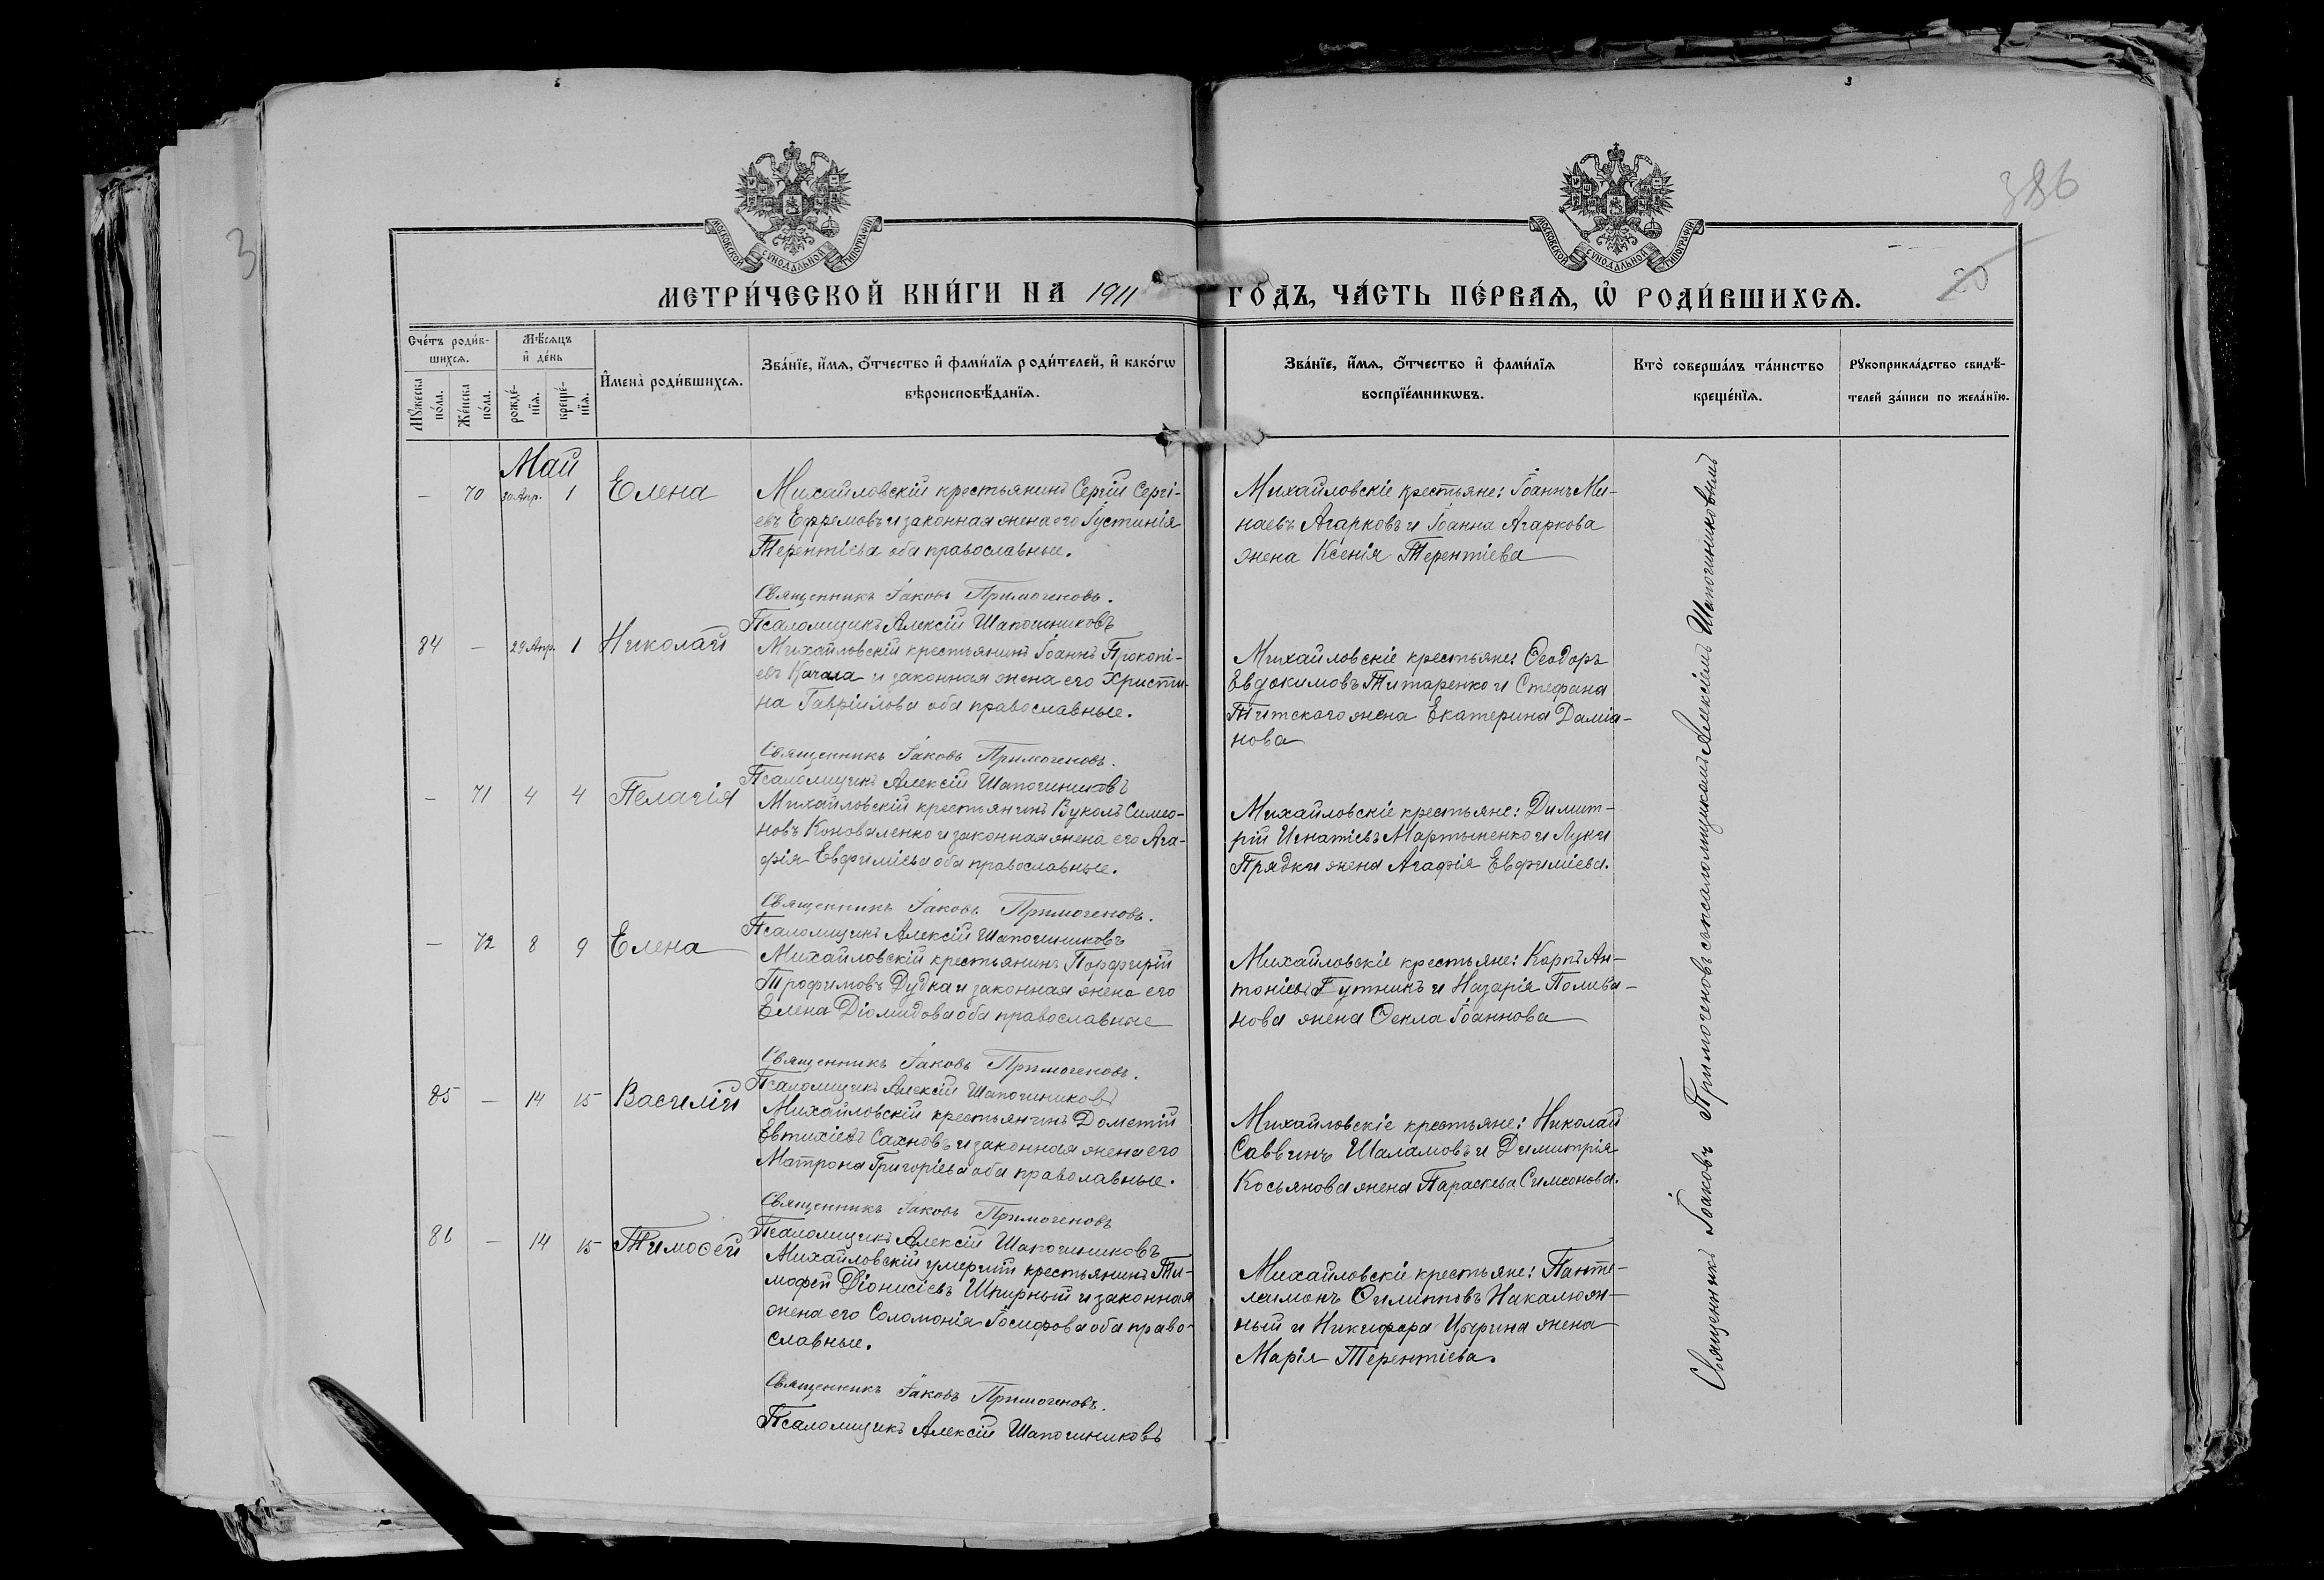 386
20
3
МОСКОВСКОЙ СѴНОДАЛЬНОЙ ТИПОГРАФІИ
МОСКОВСКОЙ СѴНОДАЛЬНОЙ ТИПОГРАФІИ
МЕТРИ́ЧЕСКОЙ КНИ́ГИ НА 1911 ГО́ДЪ, ЧА́СТЬ ПЕ́РВАЯ, Ѡ РОДИ́ВШИХСѦ.
Сче́тъ роди́в-
шихсѧ.
Мꙋ́жеска по́ла.
Же́нска по́ла.
Мѣ́сѧцъ
и де́нь
рожде́-
нїѧ.
креще́-
нїѧ.
Имена̀ роди́вшихсѧ.
Зва́нїе, и́мѧ, о́тчество и фами́лїѧ роди́телей, и како́гѡ
вѣроисповѣ́данїѧ.
Зва́нїе, и́мѧ, о́тчество и фами́лїѧ
воспрїе́мникѡвъ.
Кто̀ соверша́лъ та́инство
креще́нїѧ.
Рꙋкоприкла́дство свидѣ́-
телей за́писи по жела́нїю.
Май
— 70 30 Апр. 1 Елена
Михайловскій крестьянинъ Сергій Сергі-
евъ Ефремовъ и законная жена его Іустинія
Терентіева оба православные.
Священникъ Іаковъ Примогеновъ.
Псаломщикъ Алексій Шапошниковъ
Михайловскіе крестьяне: Іоаннъ Ми-
наевъ Агарковъ и Іоанна Агаркова
жена Ксенія Терентіева
84 — 29 Апр. 1 Николай
Михайловскій крестьянинъ Іоаннъ Прокопі-
евъ Качала и законная жена его Христи-
на Гавріилова оба православные.
Священникъ Іаковъ Примогеновъ.
Псаломщикъ Алексій Шапошниковъ
Михайловскіе крестьяне: Ѳеодоръ
Евдокимовъ Титаренко и Стефана
Титского жена Екатерина Даміа-
нова
— 71 4 4 Пелагія
Михайловскій крестьянинъ Вуколъ Симео-
новъ Коноваленко и законная жена его Ага-
фія Евфиміева оба православные.
Священникъ Іаковъ Примогеновъ.
Псаломщикъ Алексій Шапошниковъ
Михайловскіе крестьяне: Димит-
рій Игнатіевъ Мартыненко и Луки
Прядки жена Агафія Евфиміева.
— 72 8 9 Елена
Михайловскій крестьянинъ Порфирій
Трофимовъ Дудка и законная жена его
Елена Діомидова оба православные
Священникъ Іаковъ Примогеновъ.
Псаломщикъ Алексій Шапошниковъ
Михайловскіе крестьяне: Карпъ Ан-
тоніевъ Гутникъ и Назарія Полива-
нова жена Ѳекла Іоаннова
85 — 14 15 Василій
Михайловскій крестьянинъ Дометій
Евтихіевъ Сахновъ и законная жена его
Матрона Григоріева оба праволавные.
Священникъ Іаковъ Примогеновъ
Псаломщикъ Алексій Шапошниковъ
Михайловскіе крестьяне: Николай
Саввинъ Шаламовъ и Димитрія
Косьянова жена Параскева Симеонова.
86 — 14 15 Тимоѳей
Михайловскій умершій крестьянинъ Ти-
мофей Діонисіевъ Шпирный и законная
жена его Соломонія Іосифова оба право-
славные.
Священникъ Іаковъ Примогеновъ.
Псаломщикъ Алексій Шапошниковъ
Михайловскіе крестьяне: Панте-
леимонъ Филипповъ Накалюж-
ный и Никифора Цырина жена
Марія Терентіева.
Священникъ Іоаковъ Примогеновъ съ псаломщикомъ Алексіемъ Шапошниковымъ